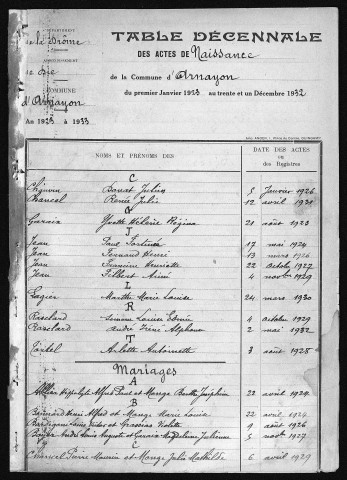 DÉPARTEMENT
de la Drôme
ARRONDISSEMENT
de Die
COMMUNE
d'Arnayon
AU 1923 à 1933
TABLE DÉCENNALE
DES ACTES DE Naissance
de la Commune d'Arnayon
du premier Janvier 1923 au trente et un Décembre 1932
NOMS ET PRÉNOMS DES
DATE DES ACTES
ou
des Registres
C
Benoit Julien 5 Janvier 1926
Chancel Renée Julie 12 avril 1929
G
Garcin Yvette Hélène Régina 21 août 1923
J
Jean Paul Fortuné 17 mai 1924
Jean Fernand Henri 13 mars 1926
Jean Henriette 22 octobre 1927
Jean Gilbert Aimé 4 novbre 1929
L
Lagier Marthe Marie Louise 24 mars 1930
R
Simone Louise 4 octobre 1929
André Iréné Alphonse 2 mai 1932
T
Arlette Antoinette 3 août 1928
Mariages
A
Hippolyte Alfred et Monge Berthe Joséphine 22 avril 1924
B
Bernard Henri Alfred et Monge Marie Louise 22 avril 1924
Louis Victor et Grassas Violette 9 août 1926
André Louis Auguste et Garcin Magdeleine Julienne 5 novbre 1927
C
Chancel Pierre Maurice et Monge Julie Mathilde 6 avril 1929